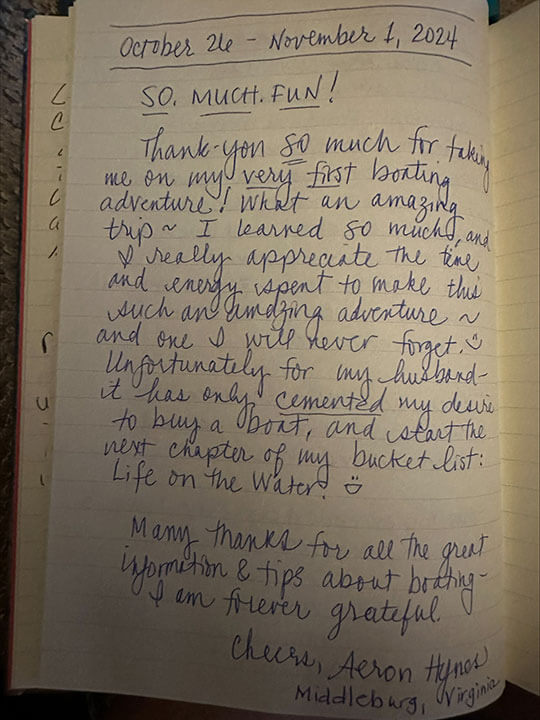 October 26 - November 1, 2024
SO. MUCH. FUN!
Thank-you so much for taking
me on my very first boating
adventure! What an amazing
trip ~ I learned so much, and
I really appreciate the time
and energy spent to make this
such an amazing adventure ~
and one I will never forget. ☺
Unfortunately for my husband-
it has only cemented my desire
to buy a boat, and start the
next chapter of my bucket list:
Life on the Water! ☺
Many thanks for all the great
information & tips about boating-
I am forever grateful.
Cheers, Aeron Hynes
Middleburg, Virginia